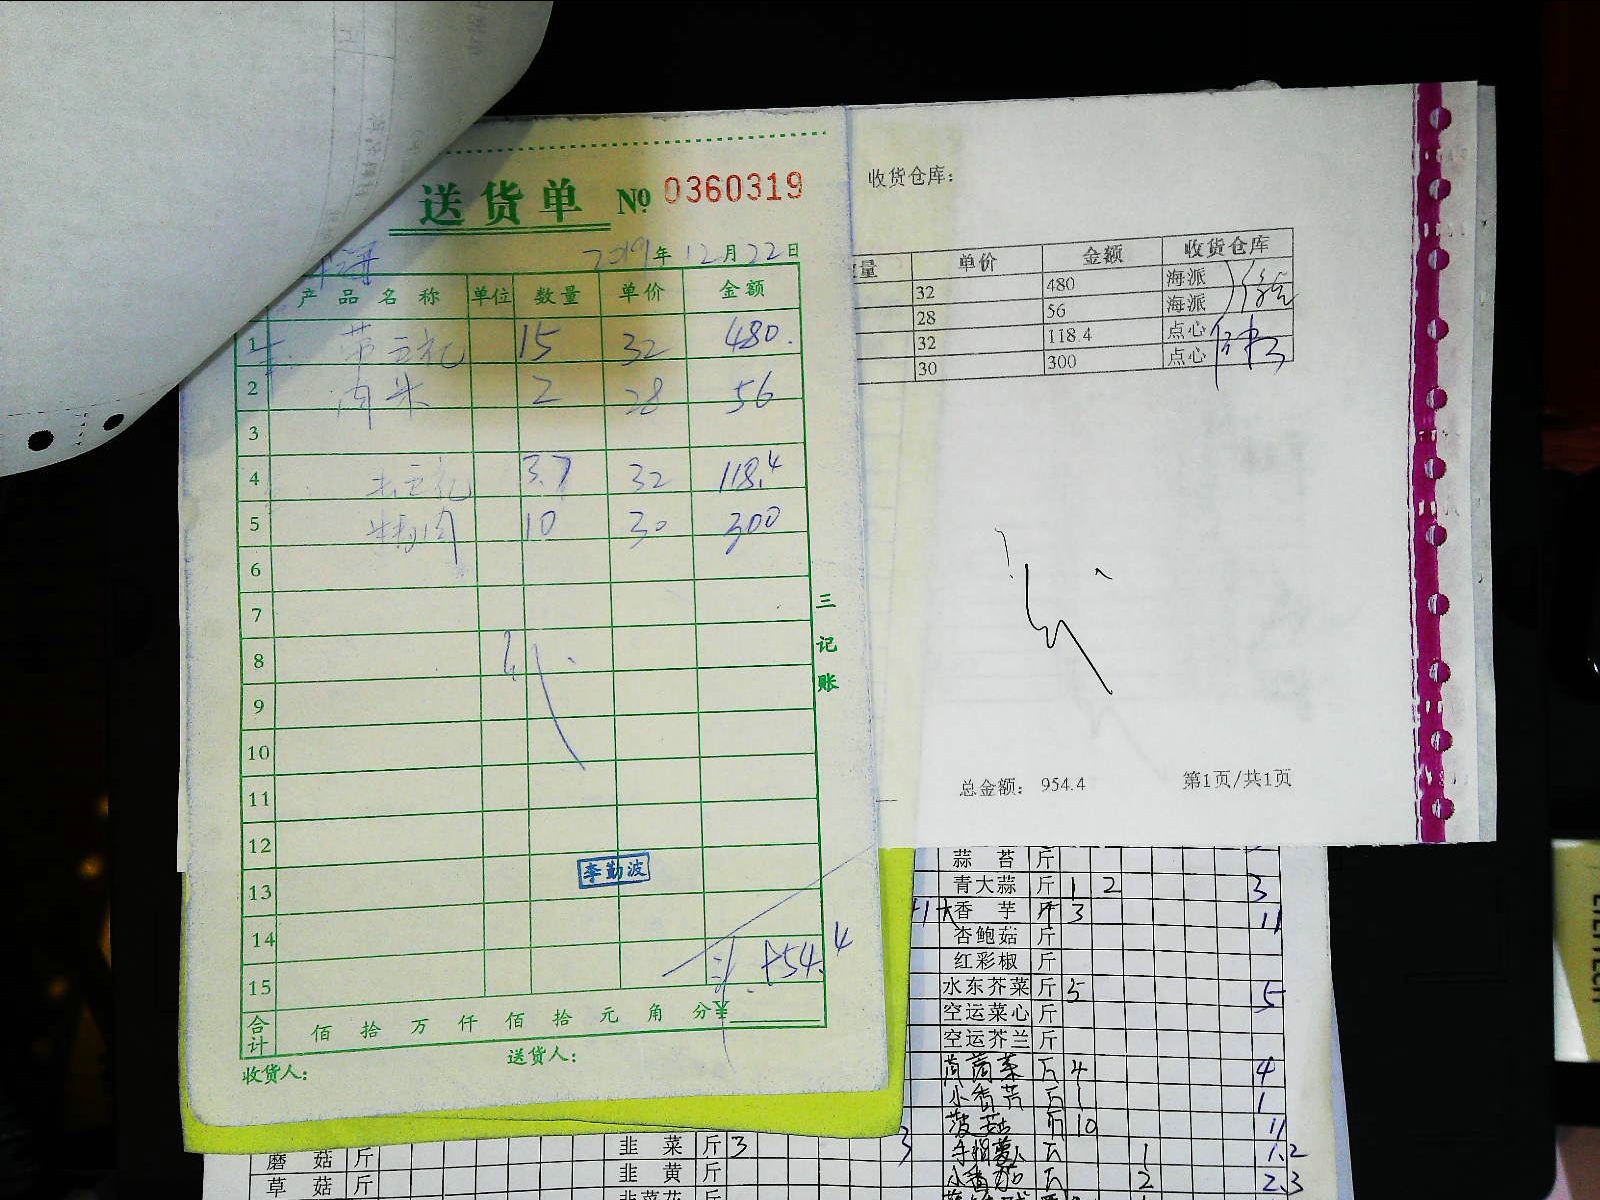 送货单 № 0360319
2019年12月22日
产品名称 单位 数量 单价 金额
1 15 32 480.
2 肉米 2 28 56
3
4 3.7 32 118.4
5 10 30 300
6
7
8
9
10
11
12
13
14
15
李勤波
合计 佰 拾 万 仟 佰 拾 元 角 分¥
收货人: 送货人:
三记账
收货仓库:
量 单价 金额 收货仓库
32 480 海派
28 56 海派
32 118.4 点心
30 300 点心
总金额: 954.4 第1页/共1页
蒜苔 斤
青大蒜 斤 1 2 3
香芋 斤 3 11
杏鲍菇 斤
红彩椒 斤
水东芥菜 斤 5 5
空运菜心 斤
空运芥兰 斤
茼蒿菜 斤 4 4
小香芹 斤 1 1
菠菇 斤 10 11
手指萝卜 斤 1 1.2
小香茄 斤 2 2.3
韭菜 斤 3 3
韭黄 斤
韭菜花 斤
磨菇 斤
草菇 斤
EYETECH